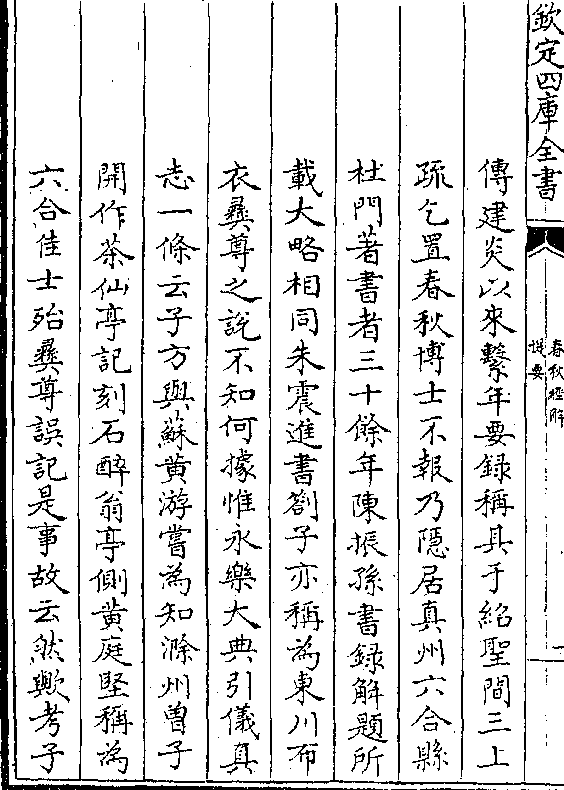 欽定四庫全書
春秋經解
提要
二
傳建炎以來繫年要録稱其于紹聖間三上
疏乞置春秋博士不報乃隱居真州六合縣
杜門著書者三十餘年陳振孫書録解題所
載大略相同朱震進書劄子亦稱為東川布
衣彞尊之說不知何據惟永樂大典引儀真
志一條云子方與蘇黄游嘗為知滁州曽子
開作茶仙亭記刻石醉翁亭側黄庭堅稱為
六合佳士殆彞尊誤記是事故云然歟考子